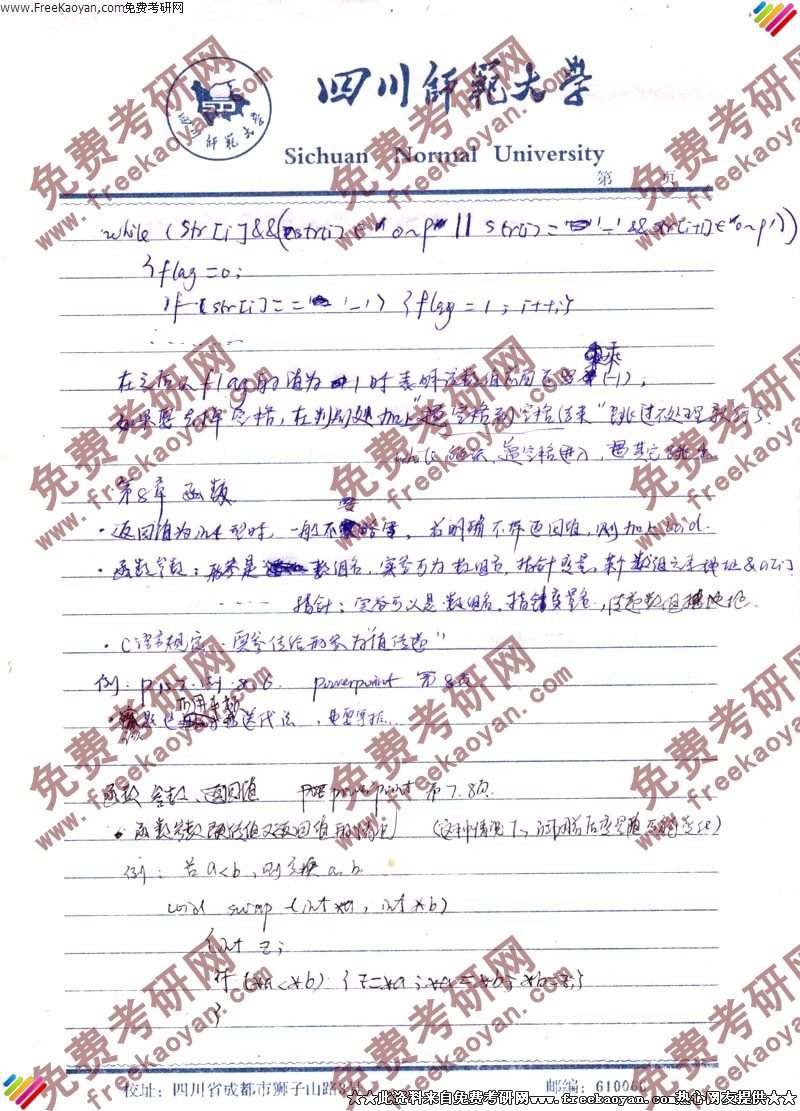 www.FreeKaoyan.com免费考研网
四川師範大學
Sichuan Normal University
第 页
while (str[i]&&(str[i]∈'0~9' || str[i]=='-' && str[i+1]∈'0~9'))
{flag=0;
if (str[i]=='-') {flag=1; i++;}
在之后以flag的值为1时表明该数值前面还要乘(-1);
如果要去掉空格,在判别处加上"遇空格到空格结束"跳过不处理就行了
while 遇空格进入,遇其它跳出
第8章 函数
·返回值为int型时,一般不要略写,若明确不带返回值,则加上void.
·函数参数:形参是数组名,实参可为数组名,指针变量,某个数组元素地址&a[i]
指针:实参可以是数组名,指针变量名,传递数组地址.
·C语言规定,"实参传给形参为值传递"
例:P157.例8.6. powerpoint 第8页
迭代法,
函数参数、返回值 powerpoint 第7.8页.
·函数参数既传值又返回值的情况
例:若a<b,则交换a,b.
void swap (int *a, int *b)
{int z;
if (*a<*b) {z=*a;*a=*b;*b=z;}
}
校址:四川省成都市狮子山路
邮编:610066
★★此资料来自免费考研网www.freekaoyan.com热心网友提供★★
免费考研网
www.freekaoyan.com